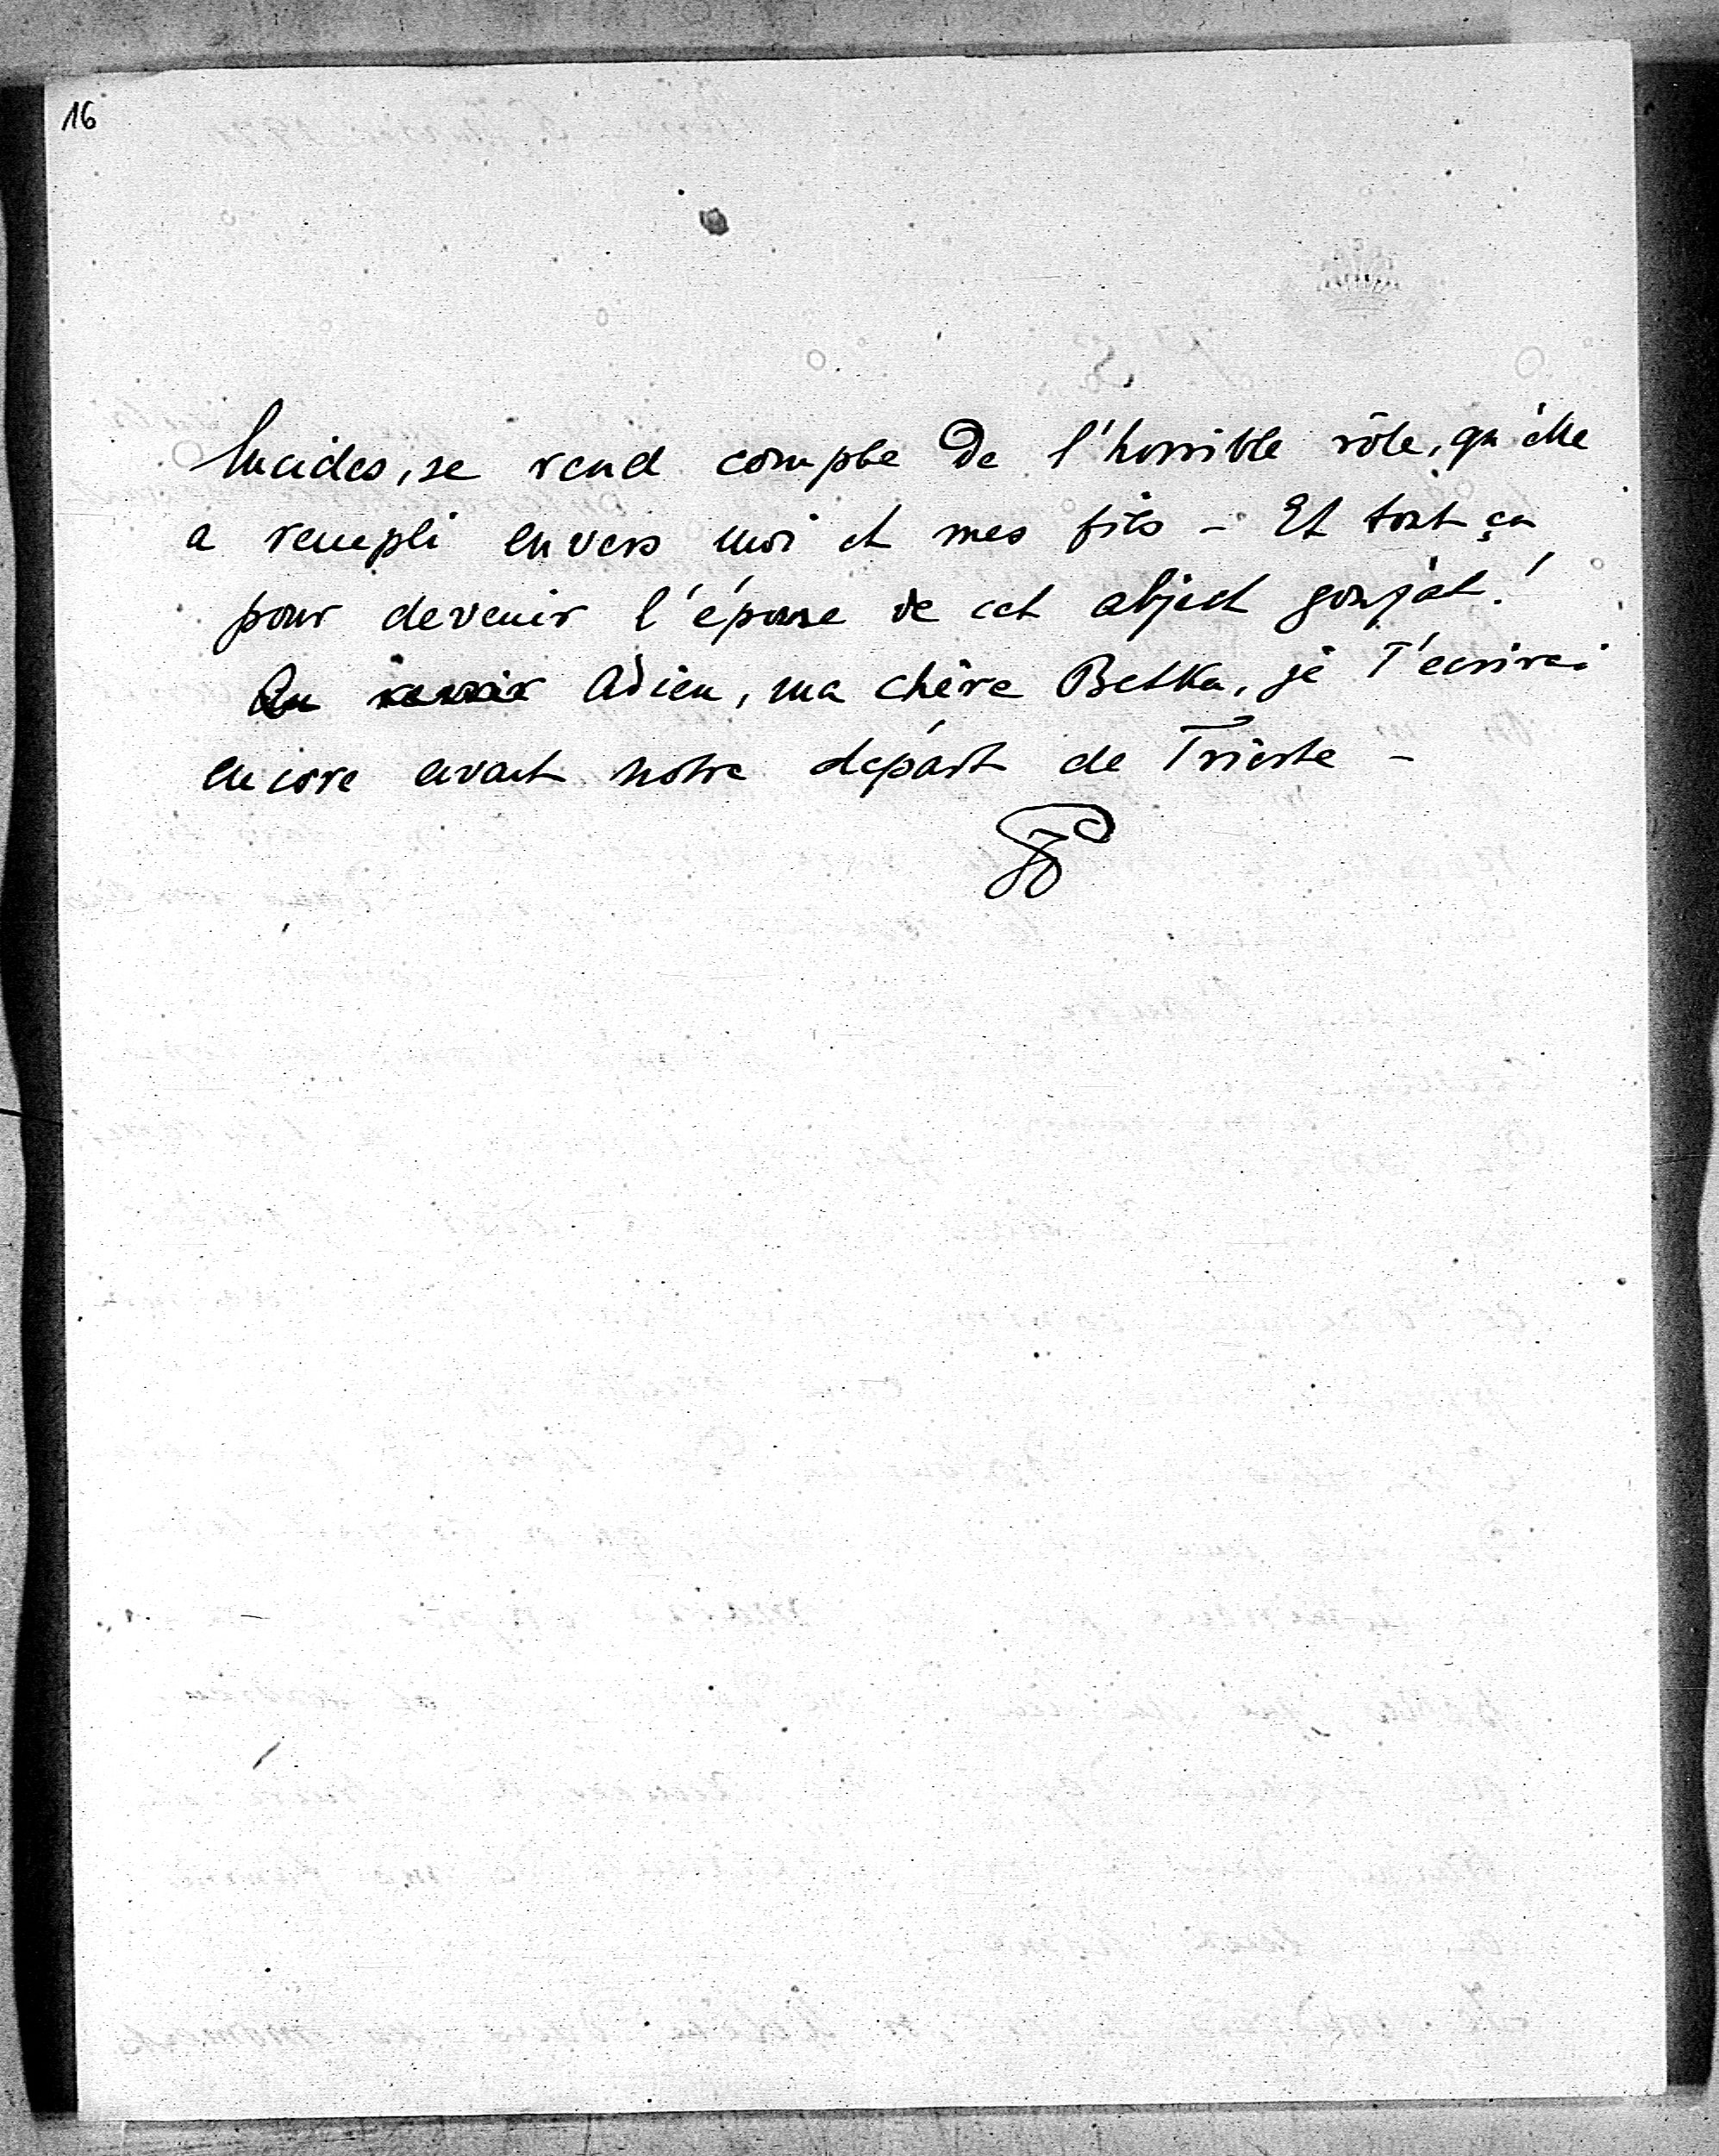 16
lucides, se rend compte de l'horrible rôle, qu'elle
a rempli envers moi et mes fils - Et tout ça
pour devenir l'épouse de cet abject goujat!
Au revoir Adieu, ma chère Betka, je T'ecrirai
encore avant notre depárt de Trieste -